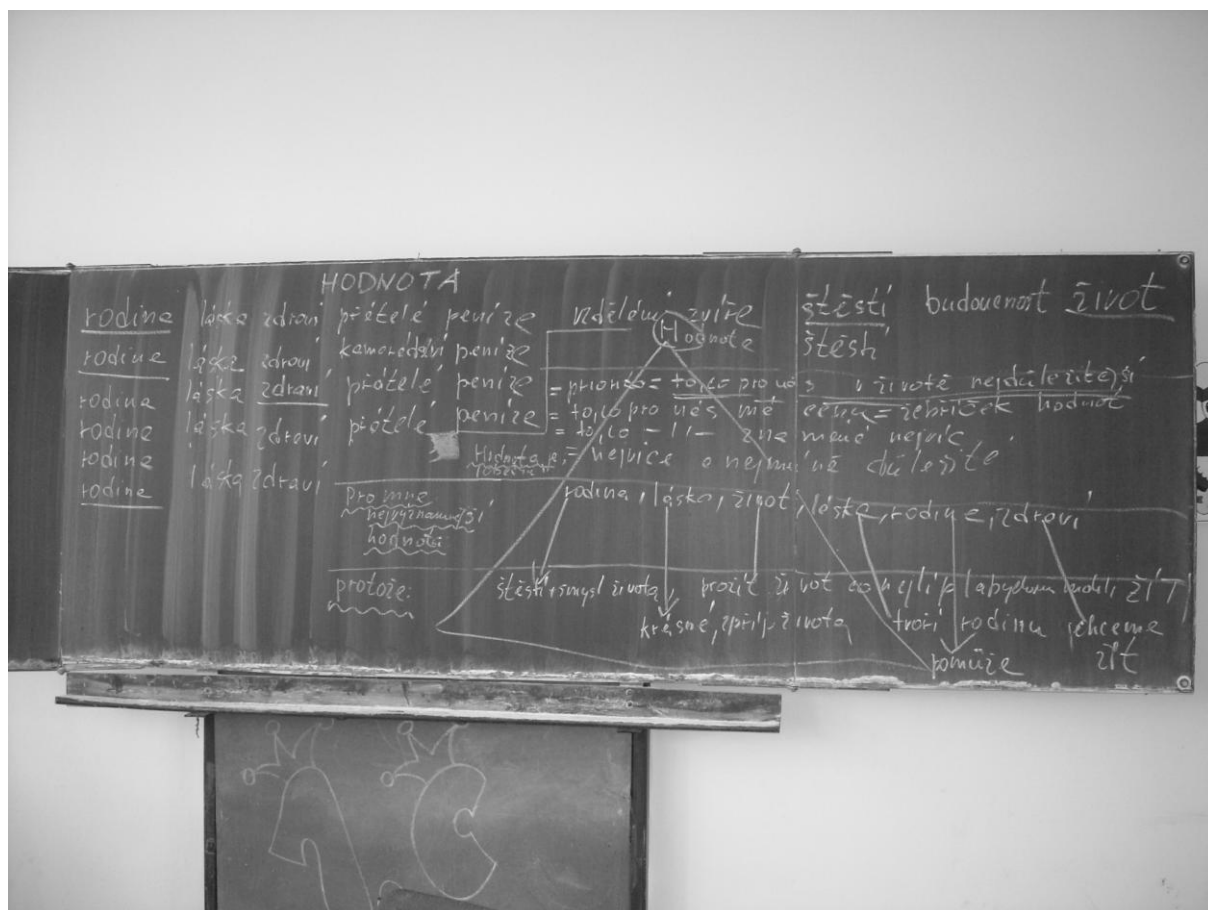 HODNOTA
rodina láska zdraví přátelé peníze vzdělání zvíře štěstí budoucnost život
rodina láska zdraví kamarádství peníze Hodnota štěstí
rodina láska zdraví přátelé peníze = = to, co pro nás v životě nejdůležitější
rodina láska zdraví přátelé peníze = to, co pro nás má cenu = žebříček hodnot
rodina = to, co - 11 - znamená nejvíc
rodina láska zdraví Hodnota je = nejvíce a nejméně důležité
Pro mne rodina, láska, život, láska, rodina, zdraví
nejvýznamnější
hodnota
protože: štěstí + smysl života, prožít život co nejlíp abychom mohli ŽÍT
krásné, zpříj. života, tvoří rodinu chceme
pomůže žít